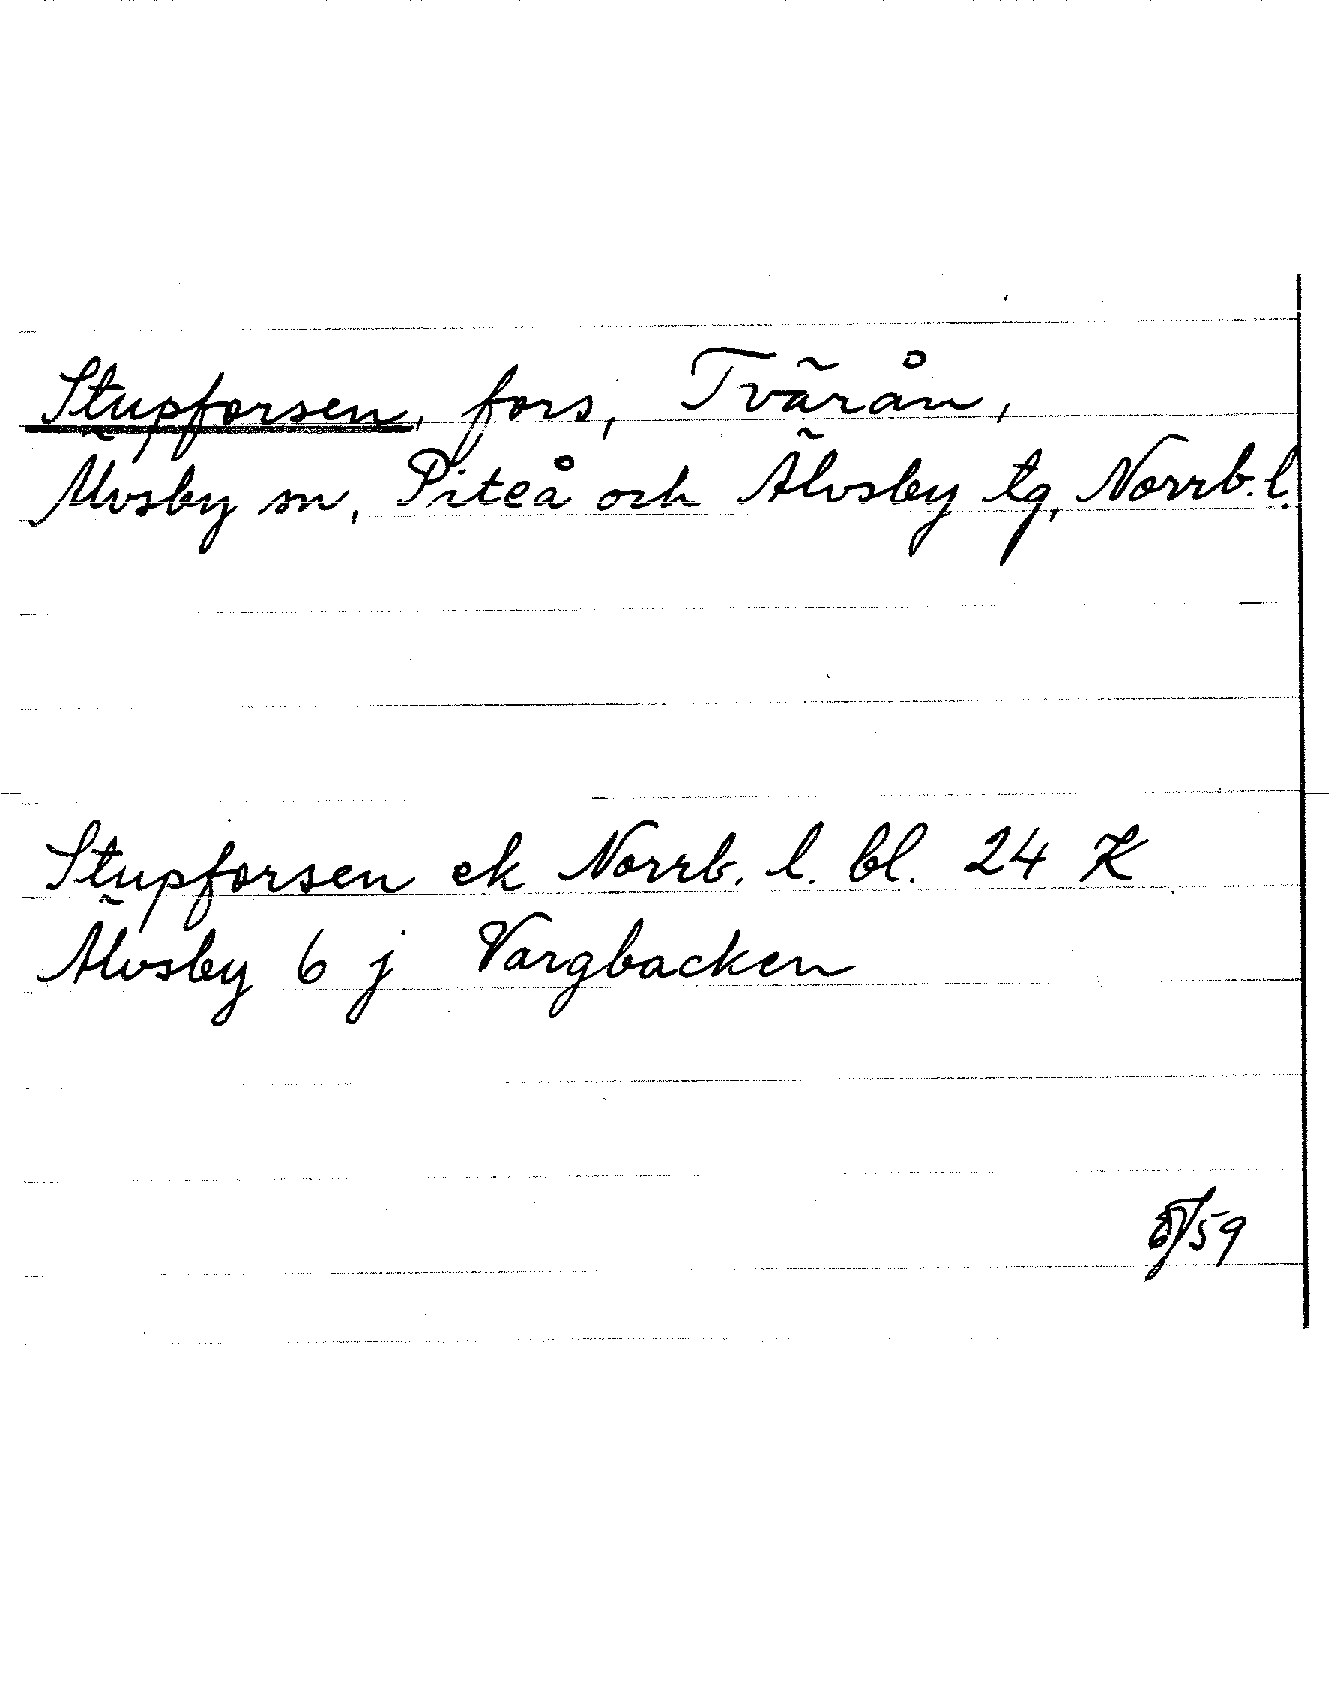 Stupforsen, fors, Tvärån,
Älvsby sn, Piteå och Älvsby tg, Norrb. l.
Stupforsen ek Norrb. l. bl. 24 K
Älvsby 6 j Vargbacken
/59